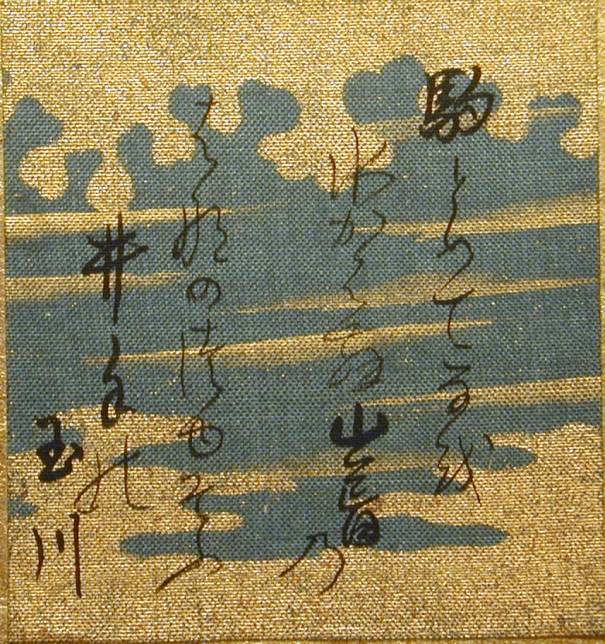 駒とめてなを
水かはん山吹の
はなのつゆそふ
井手の
玉川